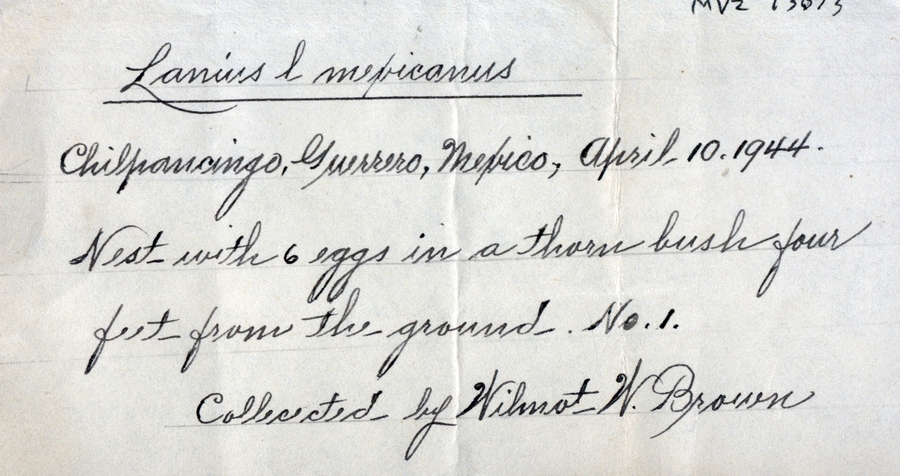 MVZ 13673
Lanius l mexicanus
Chilpancingo, Guerrero, Mexico, April 10. 1944.
Nest with 6 eggs in a thorn bush four
feet from the ground. No. 1.
Collected by Wilmot W. Brown